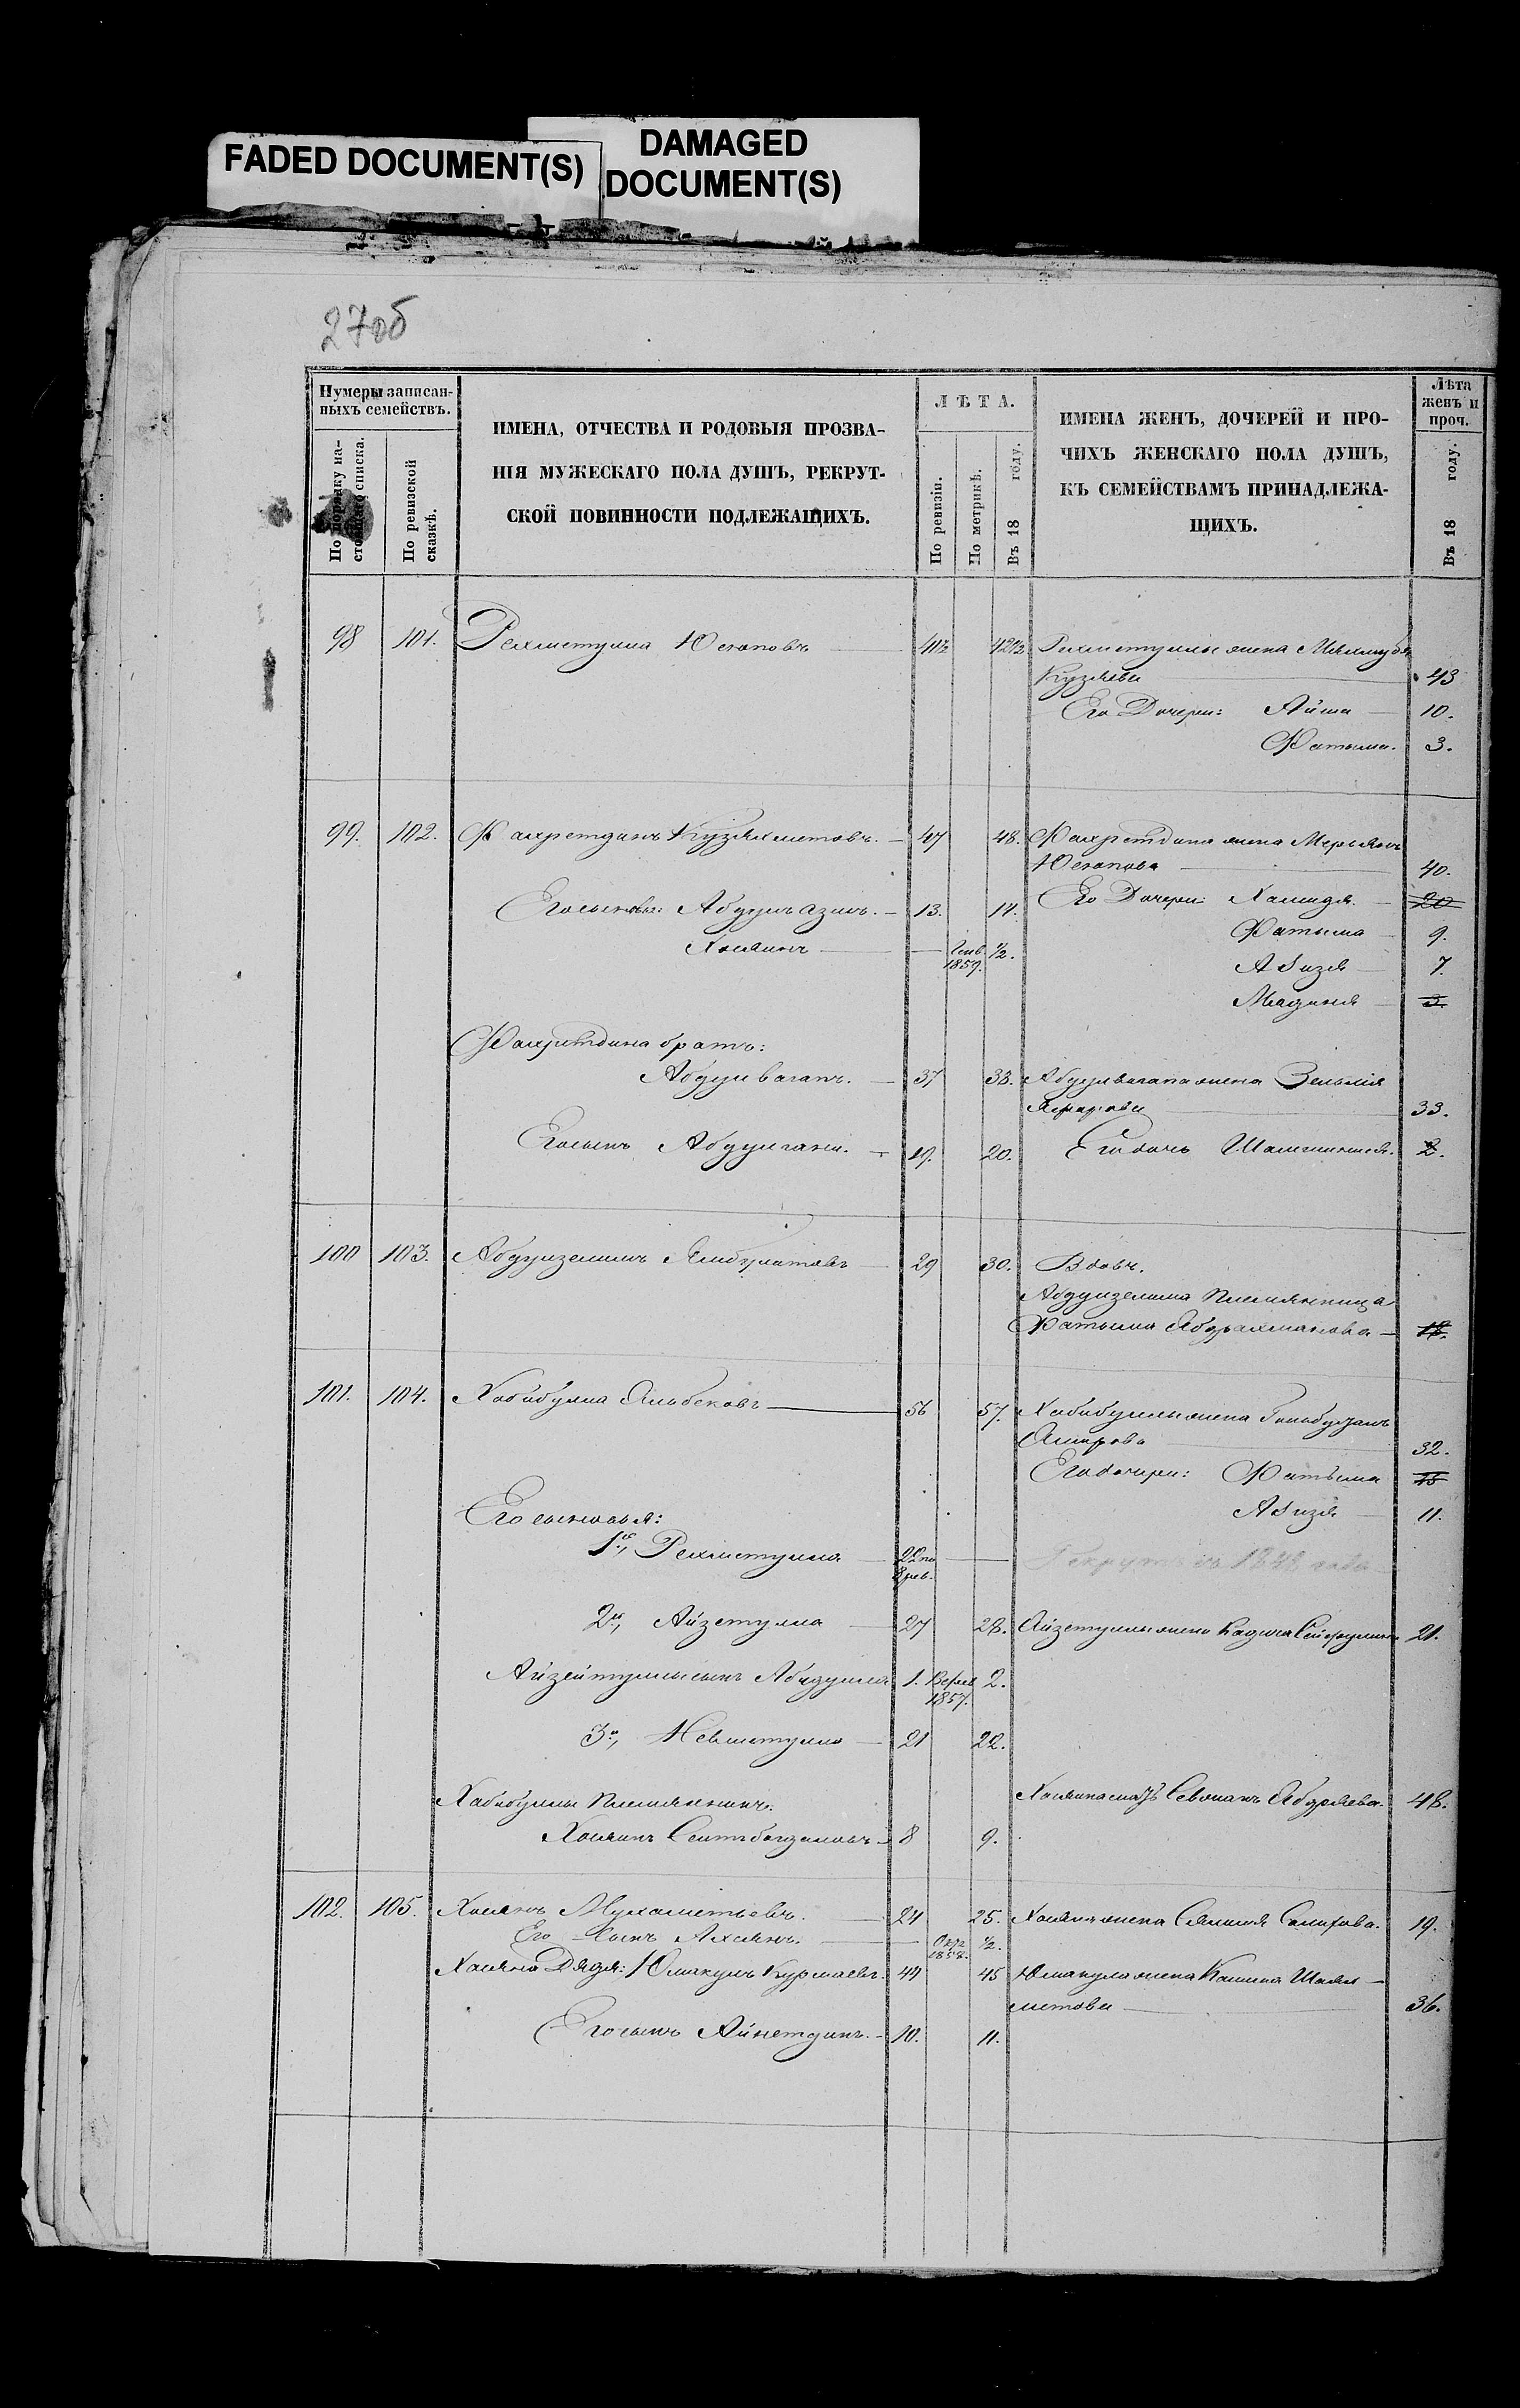 FADED DOCUMENT(S)
DAMAGED
DOCUMENT(S)
27об
Нумеры записан-
ныхъ семействъ.
По порядку на-
стоящаго списка.
По ревизской
сказкѣ.
ИМЕНА, ОТЧЕСТВА И РОДОВЫЯ ПРОЗВА-
НІЯ МУЖЕСКАГО ПОЛА ДУШЪ, РЕКРУТ-
СКОЙ ПОВИННОСТИ ПОДЛЕЖАЩИХЪ.
ЛѢТА.
По ревизіи.
По метрикѣ.
Въ 18 году.
ИМЕНА ЖЕНЪ, ДОЧЕРЕЙ И ПРО-
ЧИХЪ ЖЕНСКАГО ПОЛА ДУШЪ,
КЪ СЕМЕЙСТВАМЪ ПРИНАДЛЕЖА-
ЩИХЪ.
Лѣта
женъ и
проч.
Въ 18 году.
98 101. Рехметулла Юсуповъ Рехметуллы жена
Кузяева 43
Его Дочери: Айша 10.
Фатыма. 3.
99. 102. Фахретдинъ Кузяхметовъ. 47 48. Фахретдина жена Мерьямъ
Юсупова 40.
Его сыновья: Абдулъазизъ. 13. 14. Его Дочери: Хамидя. 20
Хосяинъ Генв. 1859. ½. Фатыма 9.
Азизя 7.
Мадиня 3.
Фахретдина братъ:
Абдулвагапъ. 37 38. Абдулвагапа жена
33.
Его сынъ Абдулгани. 19. 20. Его дочь 2.
100 103. Абдулзелилъ Ямбулатовъ 29 30. Вдовъ.
Абдулзелила Племянница
Фатыма Абдрахманова 18.
101. 104. Хабибулла Альбековъ 56 57. Хабибуллы жена
Амирова 32.
Его дочери: Фатыма 15
Азизя 11.
Его сыновья:
1й, Рехметулла 22 по 8 рев. Рекрутъ съ 1848 года
2й, Айзетулла 27 28. Айзетуллы жена 21.
Айзетуллы сынъ Абдулла 1. 1857. 2.
3й, Невметулла 21 22.
Хабибуллы Племянникъ: Хосяина мать 48.
Хосяинъ 8 9.
102. 105. Хосяинъ Мухаметьевъ. 24 25. Хосяина жена 19.
Его Сынъ Ахсянъ. 1858. ½.
Хосяина Дядя: Юмакулъ Курмаевъ. 44 45 Юмакула жена
метова 36.
Его сынъ Айнетдинъ. 10. 11.